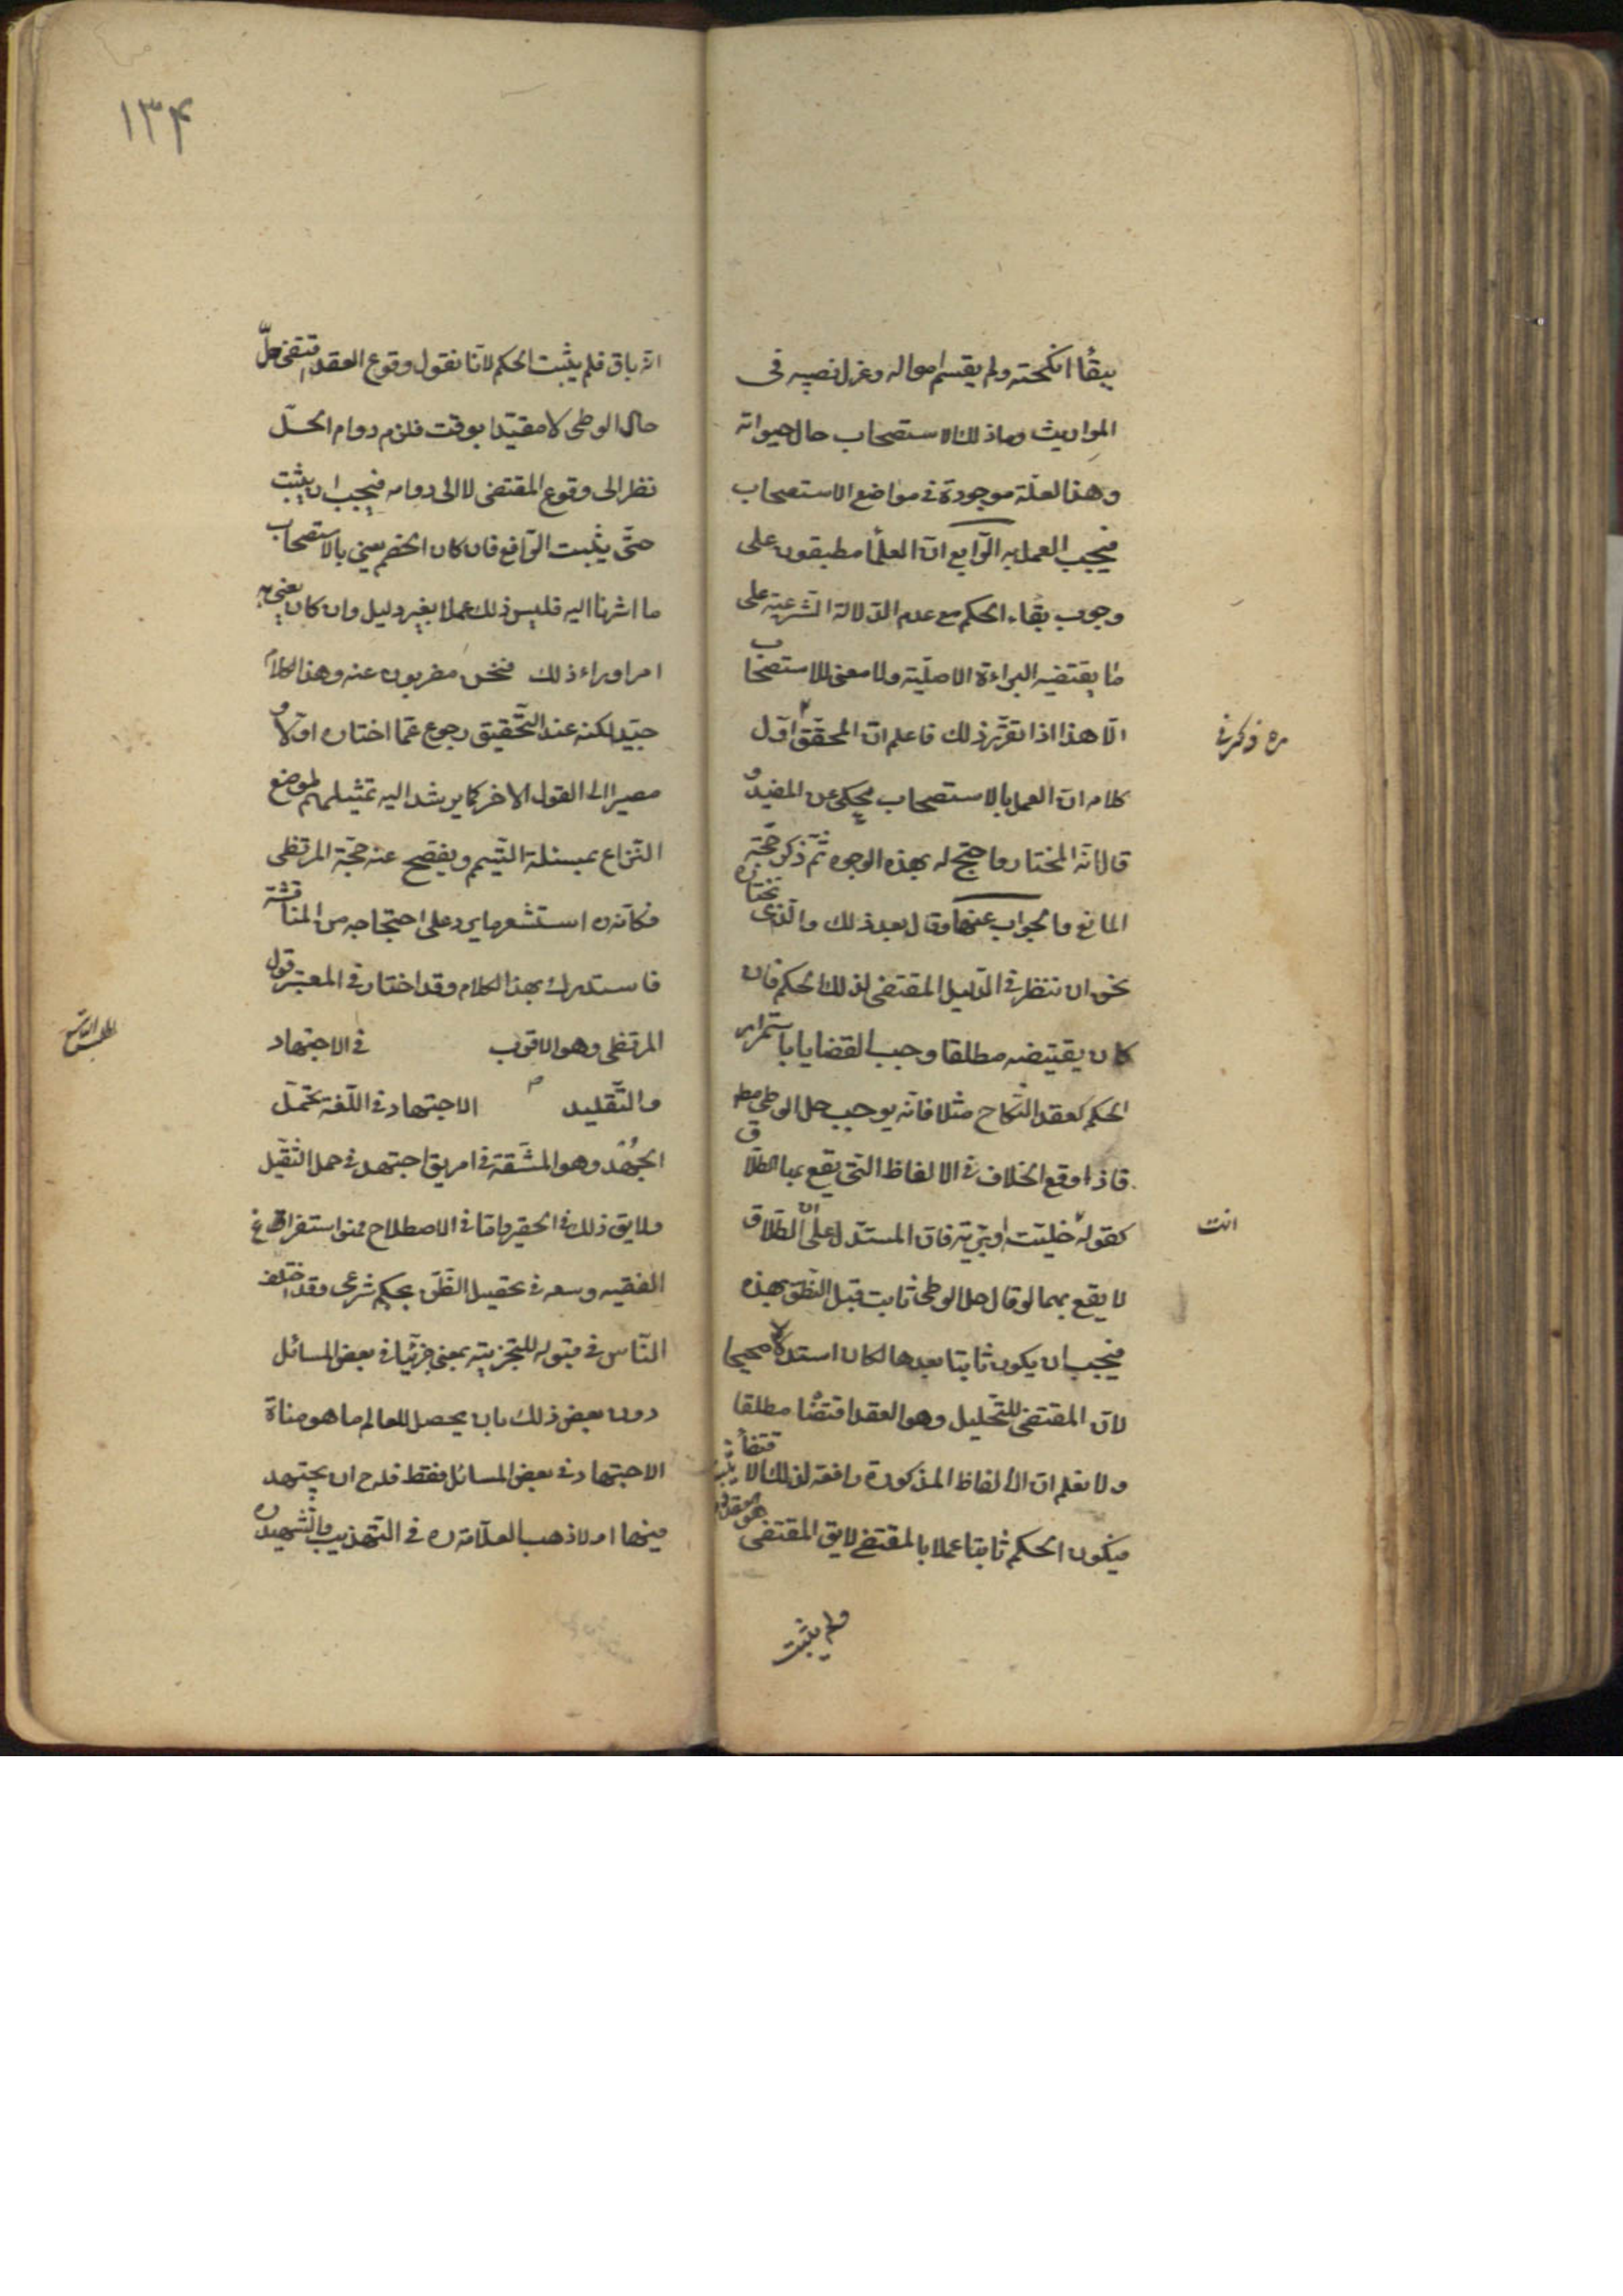 ببقاء انكحته ولم يقسم امواله وعزل نصيبه فى
المواريث وما ذلك الا لاستصحاب حال حيواته
وهذا لعلّة موجودة فى مواضع الاستصحاب
فيجب العمل به الرّابع ان العلماء مطبقون على
وجوب بقاء الحكم مع عدم الدّلالة الشّرعيّة على
ما يقتضيه البراءة الاصليّة ولا معنى للاستصحاب
الّا هذا اذا تقرّر ذلك فاعلم انّ المحقّق ره ذكر فى اوّل
كلامه انّ العمل بالاستصحاب محكى عن المفيد و
قال انّه المختار واحتج له بهذه الوجوه ثمّ ذكر حجّة
المانع والجواب عنها وقال بعد ذلك والّذى نختاره
نحن ان ننظر فى الدّليل المقتضى لذلك الحكم فان
كان يقتيضه مطلقا وجب القضايا باستمرار
الحكم كعقد النّكاح مثلا فانّه يوجب حل الوطى مط
فاذا وقع الخلاف فى الالفاظ الّتى يقع بها الطّلاق
كقوله انت خليّة او بريّة فانّ المستدل على انّ الطّلاق
لا يقع بهما لو قال حل الوطى ثابت قبل النّطق بهذه
فيجب ان يكون ثابتا بعدها لكان استدلالا صحيحا
لانّ المقتضى للتّحليل وهو العقد اقتضاه مطلقا
ولا نعلم انّ الالفاظ المذكورة رافعة لذلك الاقتضاء
فيكون الحكم ثابتا عملا بالمقتضى لا يق المقتضى هو العقد
ولم يثبت
١٣۴
انّه باق فلم يثبت الحكم لانّا نقول وقوع العقد اقتضى حلّ
حال الوطى لا مقيّدا بوقت فلزم دوام الحلّ
نظر الى وقوع المقتضى لا الى دوامه فيجب ان يثبت
حتّى يثبت الرّافع فان كان الخصم يعنى بالاستصحاب
ما اشرنا اليه فليس ذلك عملا بغير دليل وان كان يعنى به
امرا وراء ذلك فنحن مضربون عنه وهذا الكلام
جيّد لكنه عند التّحقيق رجوع عمّا اختاره اوّلا و
مصير الى القول الاخر كما يرشد اليه تمثيلهم لموضع
النّزاع بمسئلة التّيمم ويفصح عنه حجّة المرتضى
فكانّه ره استشعر ما يرد على احتجاجه من المناقشة
فاستدرك بهذا الكلام وقد اختار فى المعتبر قول
المرتضى وهو الاقرب فى الاجتهاد
المطلب التاسع
والتّقليد الاجتهاد فى اللّغة تحمّل
الجهد وهو المشقّة فى امر يق اجتهد فى حمل الثقيل
ولا يق ذلك فى الحقير وامّا فى الاصطلاح فهو استفراغ
الفقيه وسعه فى تحصيل الظّنّ بحكم شرعى وقد اختلف
النّاس فى قبوله للتجزية بمعنى جزئيا فى بعض المسائل
دون بعض ذلك بان يحصل للعالم ما هو مناط
الاجتهاد فى بعض المسائل فقط فله ح ان يجتهد
فيها او لا ذهب العلّامة ره فى التّهذيب والشّهيد ره